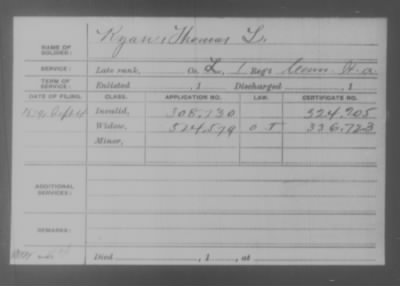 NAME OF SOLDIER: Ryan, Thomas L.
SERVICE: Late rank, Co. L, 1 Reg't Conn. H. A.
TERM OF SERVICE: Enlisted , 1 Discharged , 1
DATE OF FILING. CLASS. APPLICATION NO. LAW. CERTIFICATE NO.
Invalid, 308,730 324,905
Widow, 524,579 O J 336,723
Minor,
ADDITIONAL SERVICES:
REMARKS:
Died , 1 , at